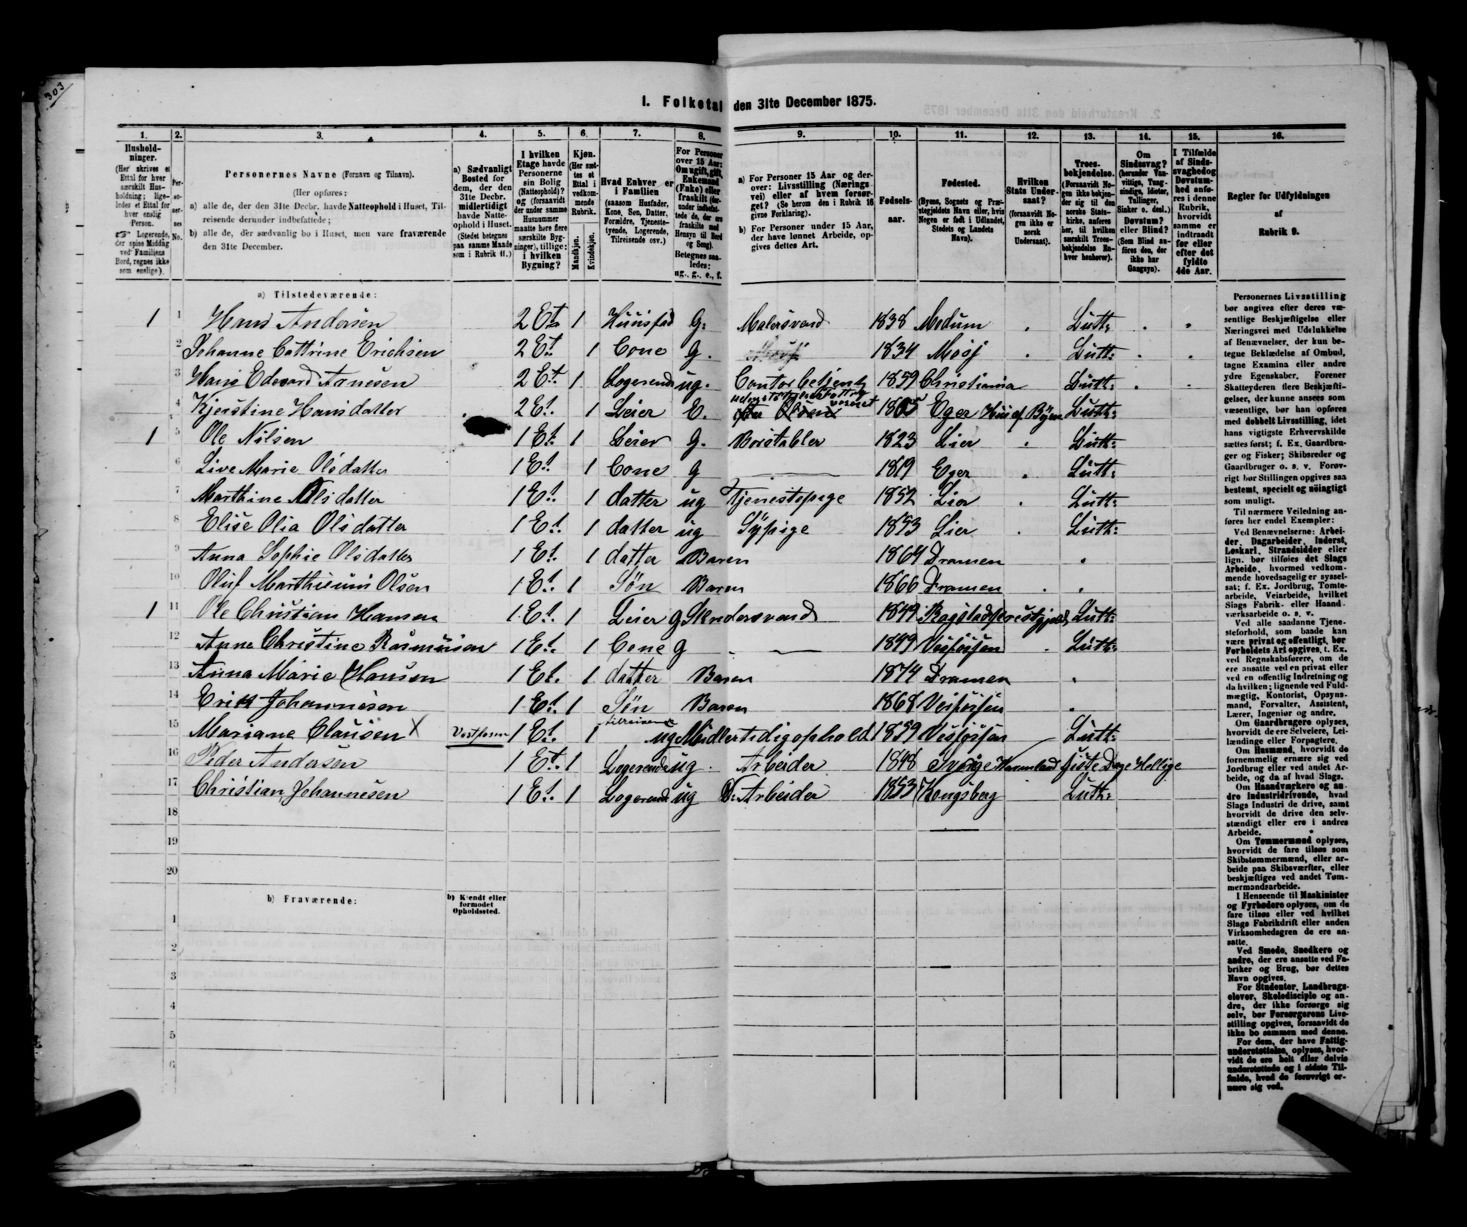 303
I. Folketal den 31te December 1875.
1. 2. 3. 4. 5. 6. 7. 8. 9. 10. 11. 12. 13. 14. 15. 16.
Hushold-
ninger.
(Her skrives et
Ettal for hver
særskilt Hus-
holdning; lige-
ledes et Ettal for
hver enslig
Person.
Logerende,
der spise Middag
ved Familiens
Bord, regnes ikke
som enslige).
Per-
soner-
nes
No.
Personernes Navne (Fornavn og Tilnavn).
(Her opføres:
a) alle de, der den 31te Decbr. havde Natteophold i Huset, Til-
reisende derunder indbefattede;
b) alle de, der sædvanlig bo i Huset, men vare fraværende
den 31te December.
a) Sædvanligt
Bosted for
dem, der den
31te Decbr.
midlertidigt
havde Natte-
ophold i Huset.
(Stedet betegnes
paa samme Maade
som i Rubrik 11.)
I hvilken
Etage havde
Personerne
sin Bolig
(Natteophold)?
og (forsaavidt
der under samme
Husnummer
maatte høre flere
særskilte Byg-
ninger), tillige:
i hvilken
Bygning?
Kjøn.
(Her sæt-
tes et
Ettal i
vedkom-
mende
Rubrik.
Mandkjøn.
Kvindekjøn.
Hvad Enhver er
i Familien
(saasom Husfader,
Kone, Søn, Datter,
Forældre, Tjeneste-
tyende, Logerende,
Tilreisende osv.)
For Personer
over 15 Aar:
Om ugift, gift,
Enkemand
(Enke) eller
fraskilt
Betegnes saa-
ledes:
ug., g., e., f.
a) For Personer 15 Aar og der-
over: Livsstilling (Nærings-
vei) eller af hvem forsør-
get? (Se herom den i Rubrik 16
givne Forklaring).
b) For Personer under 15 Aar,
der have lønnet Arbeide, op-
gives dettes Art.
Fødsels-
aar.
Fødested.
(Byens, Sognets og Præ-
stegjeldets Navn eller, hvis
Nogen er født i Udlandet,
Stedets og Landets
Navn).
Hvilken
Stats Under-
saat?
(forsaavidt No-
gen ikke er
norsk
Undersaat).
Troes-
bekjendelse.
(Forsaavidt No-
gen ikke bekjen-
der sig til den
norske Stats-
kirke, anføres
det Troessamfund,
til hvilket
særskilt Troes-
bekjendelse Ra-
hver henhører).
Om
Sindssvag?
(herunder Van-
vittige, Tung-
sindige, Idioter,
Sinker o. desl.)
Døvstum?
eller Blind?
(Som Blind an-
føres den, der
ikke har
Gangsyn).
I Tilfælde
af Sinds-
svaghed og
Døvstum-
hed anfø-
res i denne
Rubrik,
hvorvidt
samme er
indtraadt
før eller
efter det
fyldte
4de Aar.
Regler for Udfyldningen
af
Rubrik 9.
a) Tilstedeværende:
1 1 Hans Andersen 2 Et. 1 Huusfad G. Malersvend 1838 Modum Luth:
2 Johanne Cathrine Erichsen 2 Et. 1 Cone G. 1834 Moss Luth:
3 Hans Edvard Arnesen 2 Et. 1 Logerende ug. Contorbetjent 1859 Christiania Luth:
4 Kjerstine Hansdatter 2 Et. 1 Leier E. 1805 Eger Luth:
1 5 Ole Nilsen 1 Et. 1 Leier g. 1823 Lier Luth:
6 Live Marie Olsdatter 1 Et. 1 Cone g 1819 Eger Luth:
7 Marthine Olsdatter 1 Et. 1 datter ug Tjenestepige 1852 Lier Luth:
8 Elise Olia Olsdatter 1 Et. 1 datter ug Sypige 1853 Lier Luth:
9 Anna Sophie Olsdatter 1 Et. 1 datter Baren 1864 Dramen
10 Oluf Marthinius Olsen 1 Et. 1 Søn Baren 1866 Dramen
1 11 Ole Christian Hansen 1 Et. 1 Leier g Skredersvend 1849 Luth:
12 Anne Christine Rasmussen 1 Et. 1 Cone g 1849 Vestfossen Luth:
13 Anna Marie Hansen 1 Et. 1 datter Baren 1874 Dramen
14 Erik Johannesen 1 Et. 1 Søn Baren 1868 Vestfossen
15 Mariane Clausen X Vestfossen 1 Et. 1 tilreisende ug Midlertidig ophold 1859 Vestfossen Luth:
16 Peder Andersen 1 Et. 1 Logerende ug. Arbeider 1848 Sverige Wermland Siste Dage Hellige
17 Christian Johannesen 1 Et. 1 Logerende ug D: Arbeider 1853 Kongsberg Luth:
18
19
20
b) Fraværende:
b) Kjendt eller
formodet
Opholdssted.
1
2
3
4
5
6
Personernes Livsstilling
bør angives efter deres væ-
sentlige Beskjæftigelse eller
Næringsvei med Udelukkelse
af Benævnelser, der kun be-
tegne Beklædelse af Ombud,
tagne Examina eller andre
ydre Egenskaber. Forener
Skatteyderen flere Beskjæfti-
gelser, der kunne ansees som
væsentlige, bør han opføres
med dobbelt Livsstilling, idet
hans vigtigste Erhvervskilde
sættes først; f. Ex. Gaardbru-
ger og Fisker; Skibsreder og
Gaardbruger o. s. v. Forøv-
rigt bør Stillingen opgives saa
bestemt, specielt og nøiagtigt
som muligt.
Til nærmere Veiledning an-
føres her endel Exempler:
Ved Benævnelserne: Arbei-
der, Dagarbeider, Inderst,
Løskarl, Strandsidder eller
lign. bør tilføies det Slags
Arbeide, hvormed vedkom-
mende hovedsagelig er syssel-
sat; f. Ex. Jordbrug, Tomte-
arbeide, Veiarbeide, hvilket
Slags Fabrik- eller Haand-
værksarbeide o. s. v.
Ved alle saadanne Tjene-
steforhold, som baade kan
være privat og offentligt, bør
Forholdets Art opgives, t. Ex.
ved Regnskabsførere, om de
ere ansatte ved en privat eller
ved en offentlig Indretning og
da hvilken; lignende ved Fuld-
mægtig, Kontorist, Opsyns-
mand, Forvalter, Assistent,
Lærer, Ingeniør og andre.
Om Gaardbrugere oplyses,
hvorvidt de ere Selveiere, Lei-
lændinge eller Forpagtere.
Om Husmænd, hvorvidt de
fornemmelig ernære sig ved
Jordbrug eller ved andet Ar-
beide, og da af hvad Slags.
Om Haandværkere og an-
dre Industridrivende, hvad
Slags Industri de drive, samt
hvorvidt de drive den selv-
stændigt eller ere i andres
Arbeide.
Om Tømmermænd oplyses,
hvorvidt de fare tilsøs som
Skibstømmermænd, eller ar-
beide paa Skibsværfter, eller
beskjæftiges ved andet Tøm-
mermandsarbeide.
I Henseende til Maskinister
og Fyrbødere oplyses, om de
fare tilsøs eller ved hvilket
Slags Fabrikdrift eller anden
Virksomhedsgren de ere an-
satte.
Ved Smede, Snedkere og
andre, der ere ansatte ved Fa-
briker og Brug, bør dettes
Navn opgives.
For Studenter, Landbrugs-
elever, Skoledisciple og an-
dre, der ikke forsørge sig
selv, bør Forsørgerens Livs-
stilling opgives, forsaavidt de
ikke bo sammen med denne.
For dem, der have Fattig-
understøttelse, oplyses, hvor-
vidt de ere helt eller delvis
understøttede og i sidste Til-
fælde, hvad de forøvrigt er-
nære sig ved.